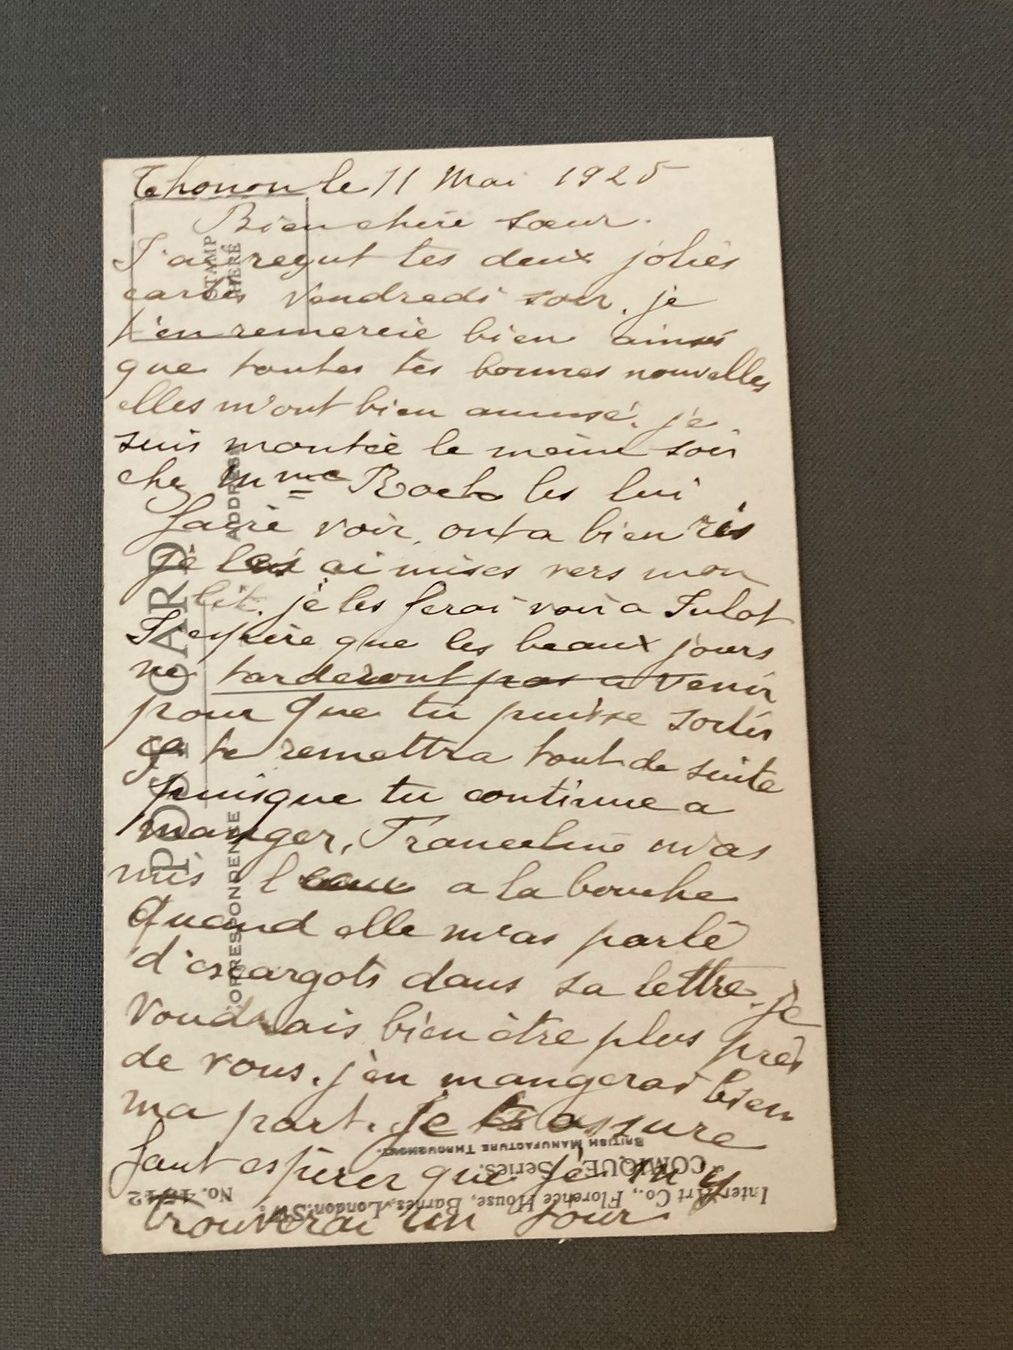 Thonon le 11 Mai 1925
Bien chère sœur.
J'ai reçut tes deux jolies
cartes vendredi soir, je
t'en remercie bien ainsi
que toutes tes bonnes nouvelles
elles m'ont bien amusé. je
suis montée le même soir
chez Mme Roch les lui
faire voir, onta bien ris
je les ai mises vers mon
lit. je les ferai voir a Julot
J'espère que les beaux jours
ne tarderont pas a venir
pour que tu puisse sortir
ça te remettra tout de suite
puisque tu continue a
manger, Franceline m'as
mis l'eau a la bouche
Quand elle m'as parlé
d'escargots dans sa lettre. je
voudrais bien être plus près
de vous. j'en mangerai bien
ma part. je t'assure
faut espérer que je m'y
trouverai un jour.
STAMP
HERE
POST CARD
CORRESPONDENCE
ADDRESS
Inter-Art Co., Florence House, Barnes, London.S.W.
"COMIQUE" Series.
BRITISH MANUFACTURE THROUGHOUT.